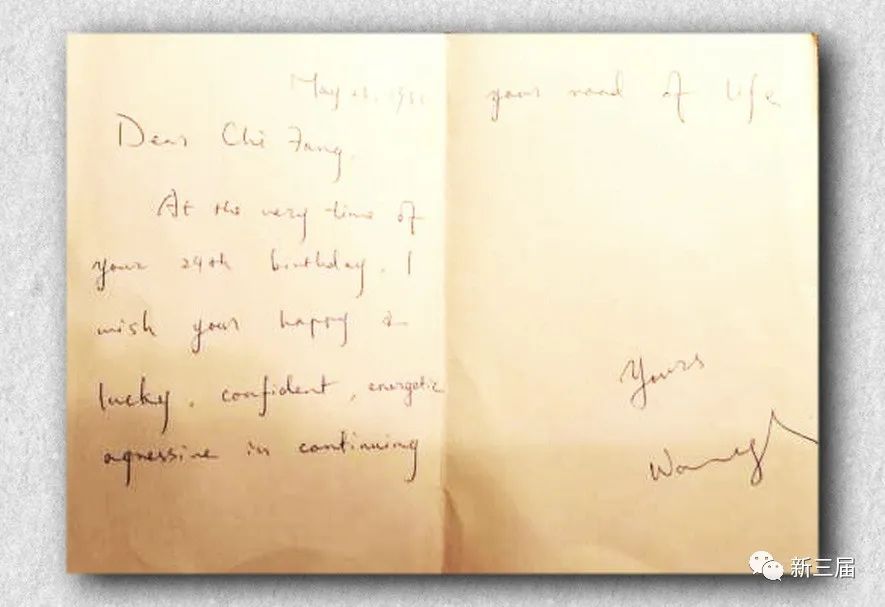 May
Dear Chi Fang,
At the very time of
your 24th birthday, I
wish your happy &
lucky, confident, energetic
agressive in continuing
your road of life
Yours
Wang
新三届